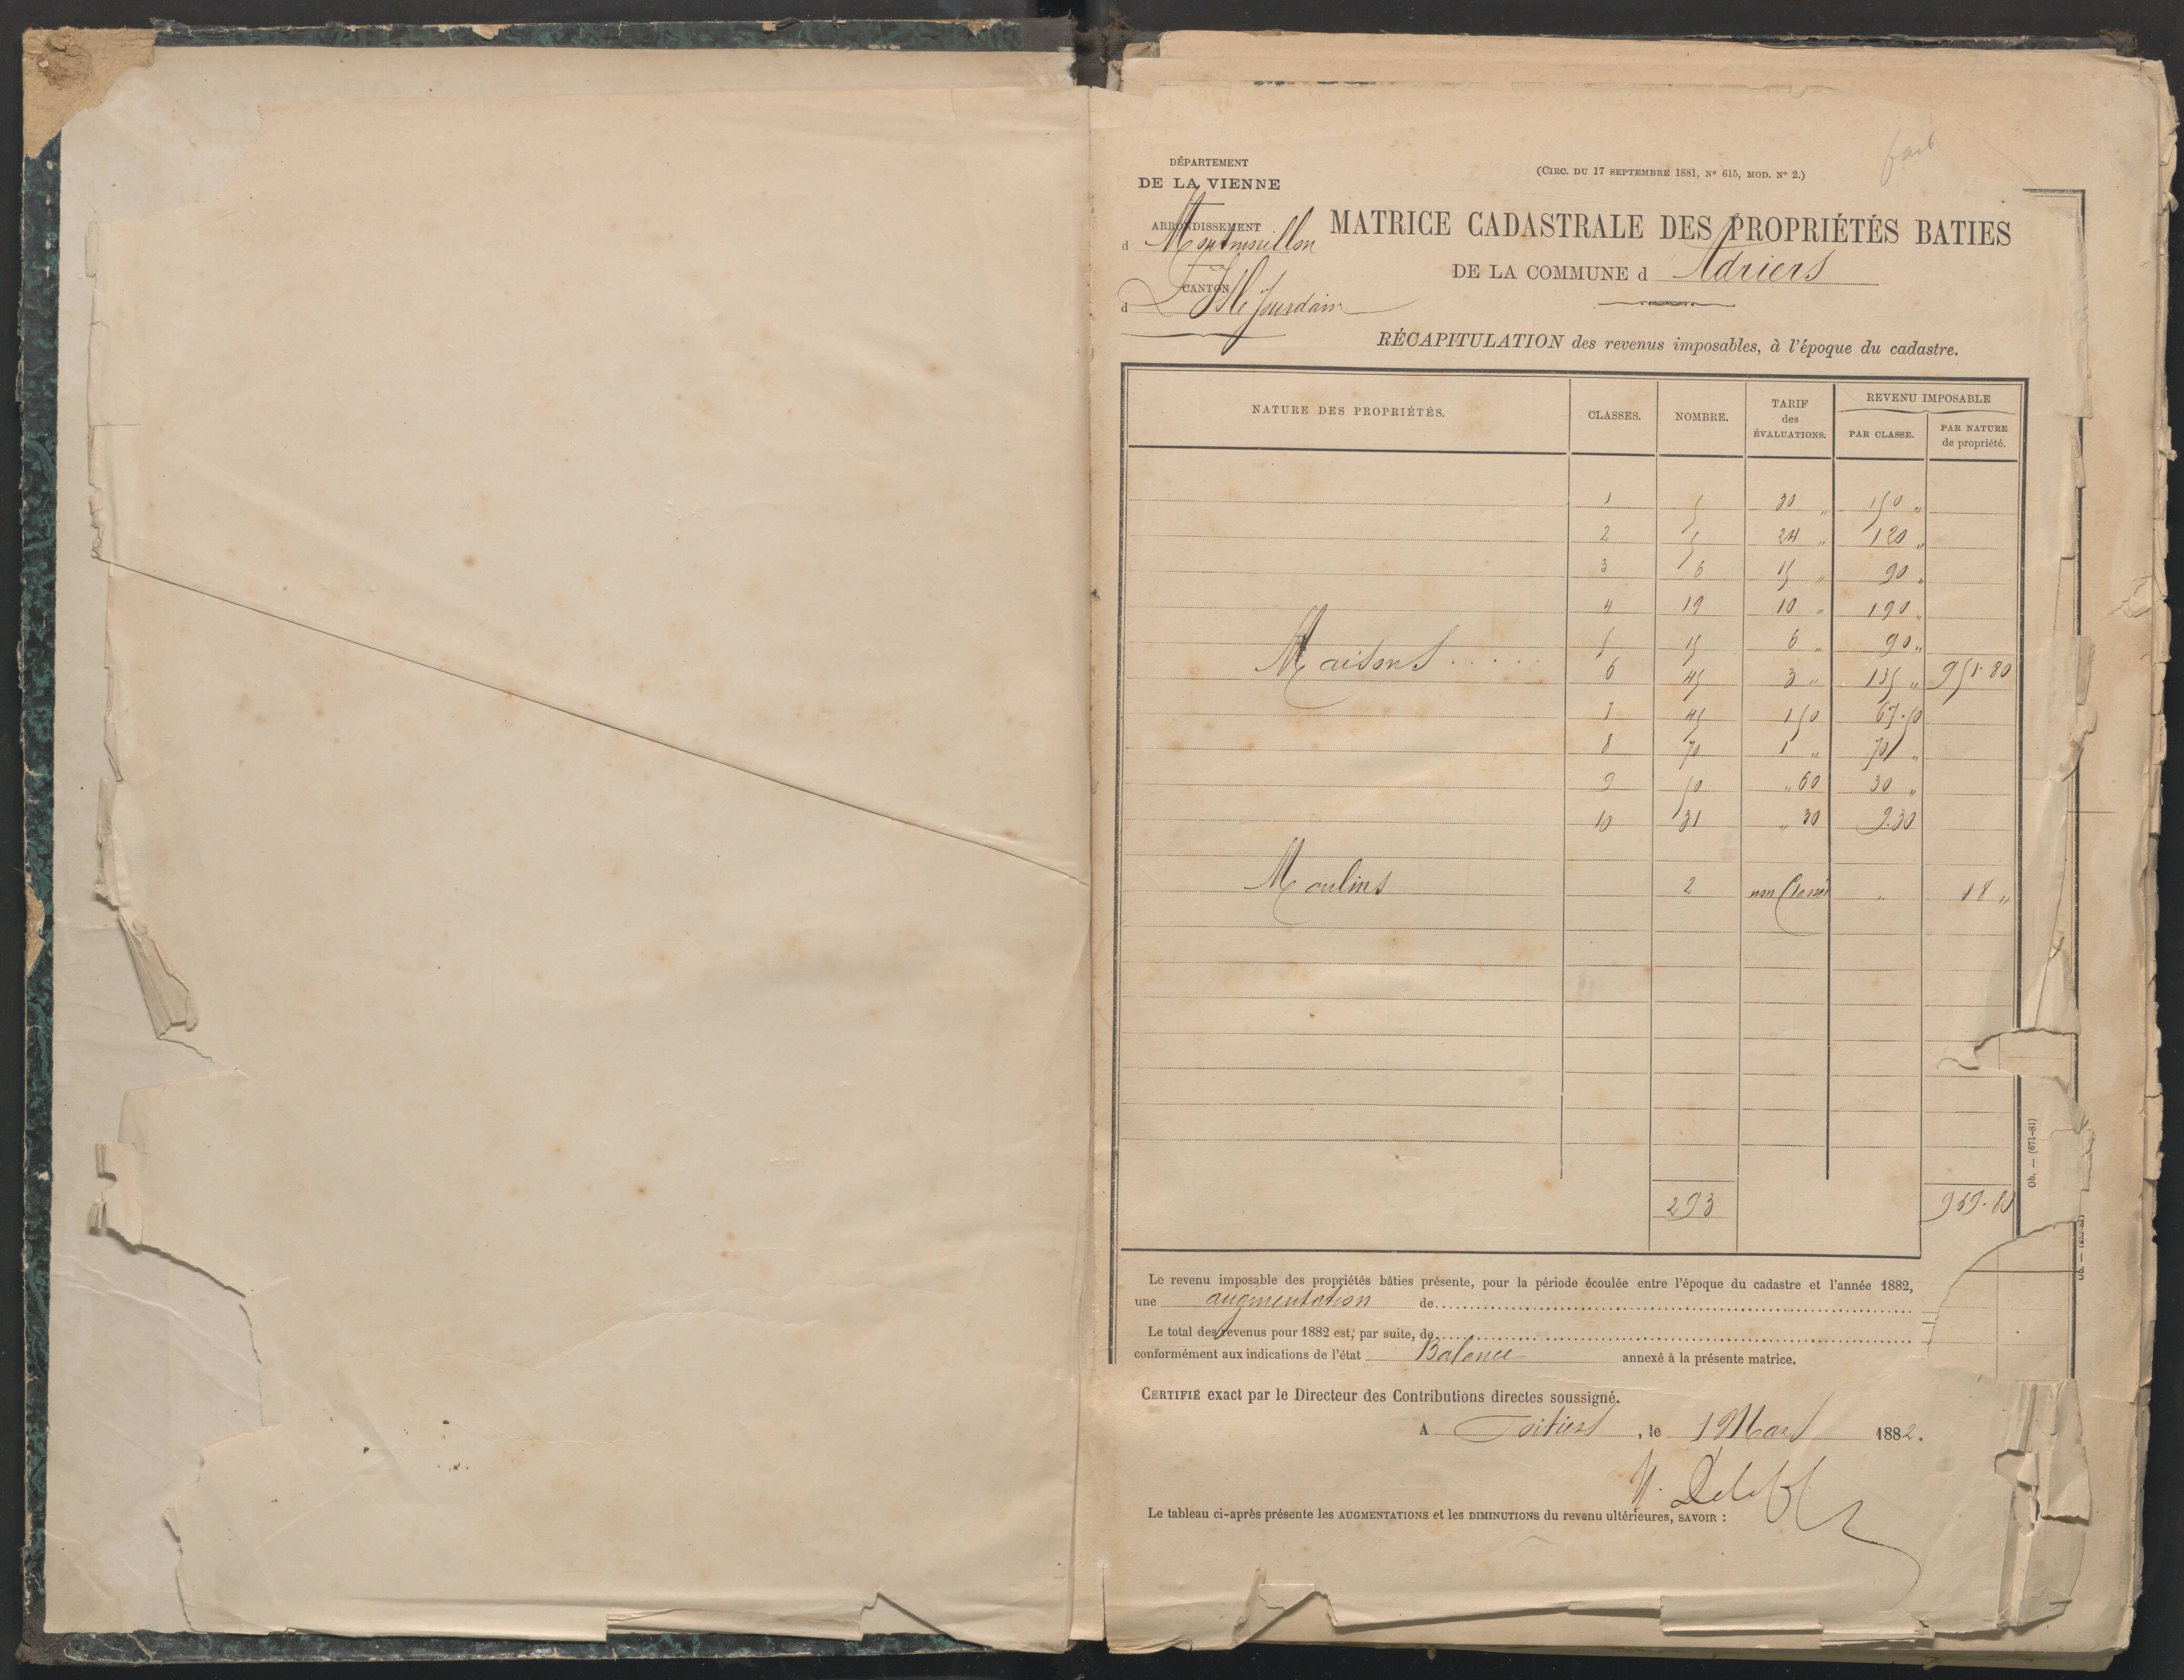 fait
DÉPARTEMENT
DE LA VIENNE
(CIRC. DU 17 SEPTEMBRE 1881, Nº 615, MOD. Nº 2.)
ARRONDISSEMENT
d Montmorillon
CANTON
d L'Isle Jourdain
MATRICE CADASTRALE DES PROPRIÉTÉS BATIES
DE LA COMMUNE d Adriers
RÉCAPITULATION des revenus imposables, à l'époque du cadastre.
NATURE DES PROPRIÉTÉS. CLASSES. NOMBRE. TARIF des ÉVALUATIONS. REVENU IMPOSABLE PAR CLASSE. PAR NATURE de propriété.
1 5 30 " 150 "
2 5 24 " 120 "
3 6 15 " 90 "
4 19 10 " 190 "
5 15 6 " 90 "
Maisons ..... 6 45 3 " 135 " 951.80
7 45 1 50 67.50
8 70 1 " 70 "
9 50 " 60 30 "
10 31 " 30 9.30
Moulins 2 non Classés " 18 "
293 969.80
Ob. — (671-81)
Le revenu imposable des propriétés bâties présente, pour la période écoulée entre l'époque du cadastre et l'année 1882,
une augmentation de
Le total des revenus pour 1882 est, par suite, de
conformément aux indications de l'état Balance annexé à la présente matrice.
CERTIFIÉ exact par le Directeur des Contributions directes soussigné.
A Poitiers, le 1 Mars 1882.
Le tableau ci-après présente les AUGMENTATIONS et les DIMINUTIONS du revenu ultérieures, SAVOIR :